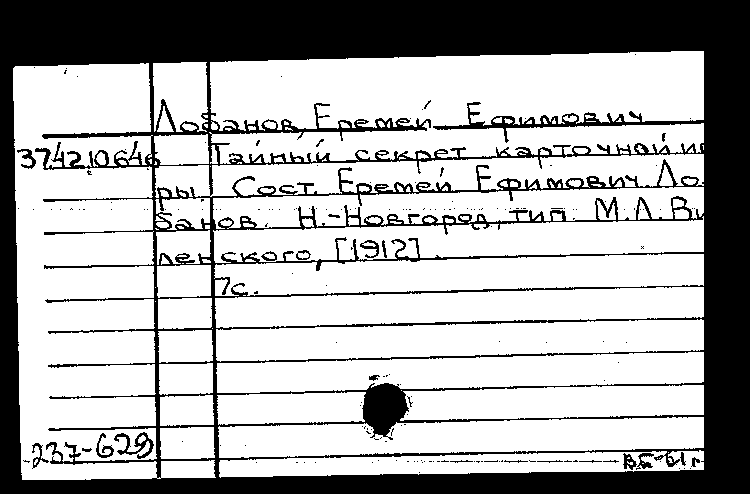 Лобанов, Еремей Ефимович
37.42.10646 Тайный секрет карточной иг
ры. Сост. Еремей Ефимович Ло-
банов. Н.-Новгород, тип. М.Л. Ви
ленского, [1912].
7с.
237-629
ВБ-61г